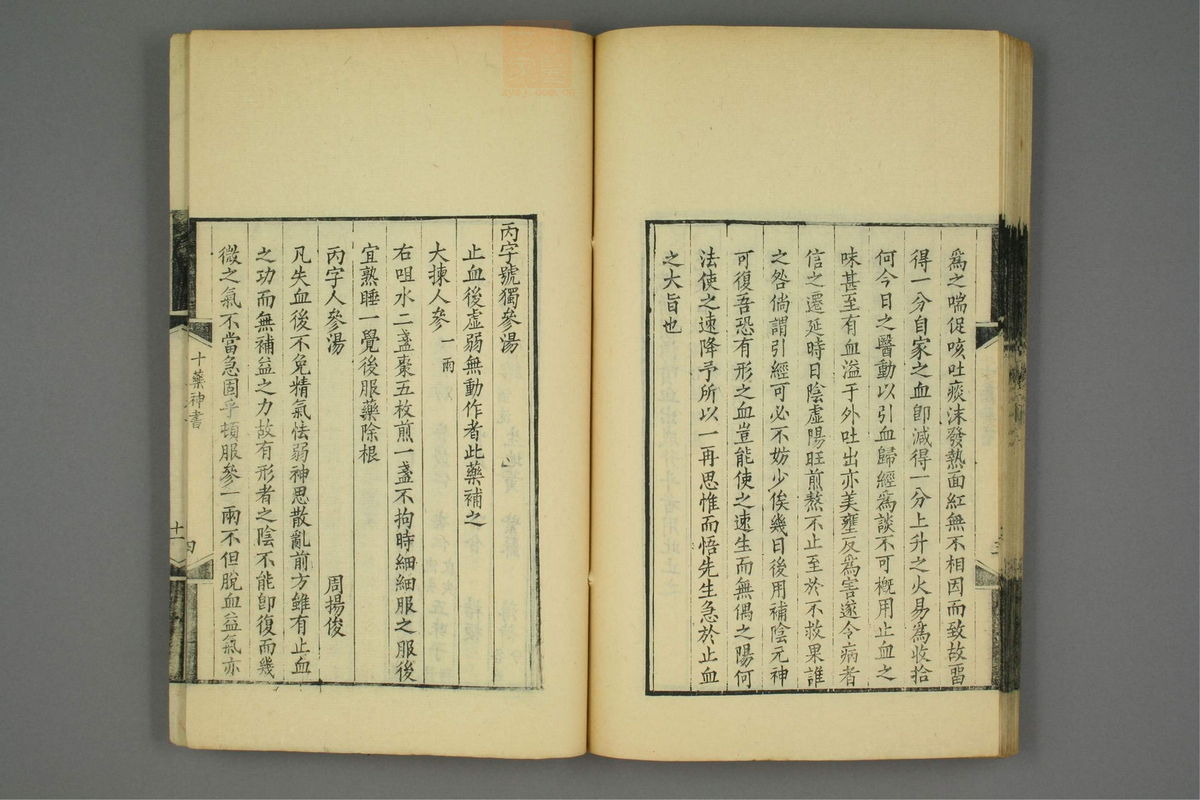 爲之喘促咳吐痰沫發熱面紅無不相因而致故畱
得一分自家之血卽減得一分上升之火易爲收拾
何今日之醫動以引血歸經爲談不可概用止血之
味甚至有血溢于外吐出亦美壅反爲害遂令病者
信之遷延時日陰虛陽旺煎熬不止至於不救果誰
之咎倘謂引經可必不妨少俟幾日後用補陰元神
可復吾恐有形之血豈能使之速生而無偶之陽何
法使之速降予所以一再思惟而悟先生急於止血
之大旨也
丙字號獨參湯
止血後虛弱無動作者此藥補之
大揀人參一兩
右咀水二盞棗五枚煎一盞不拘時細細服之服後
宜熟睡一覺後服藥除根
丙字人參湯 周揚俊
凡失血後不免精氣怯弱神思散亂前方雖有止血
之功而無補益之力故有形者之陰不能卽復而幾
微之氣不當急固乎頓服參一兩不但脫血益氣亦
十藥神書